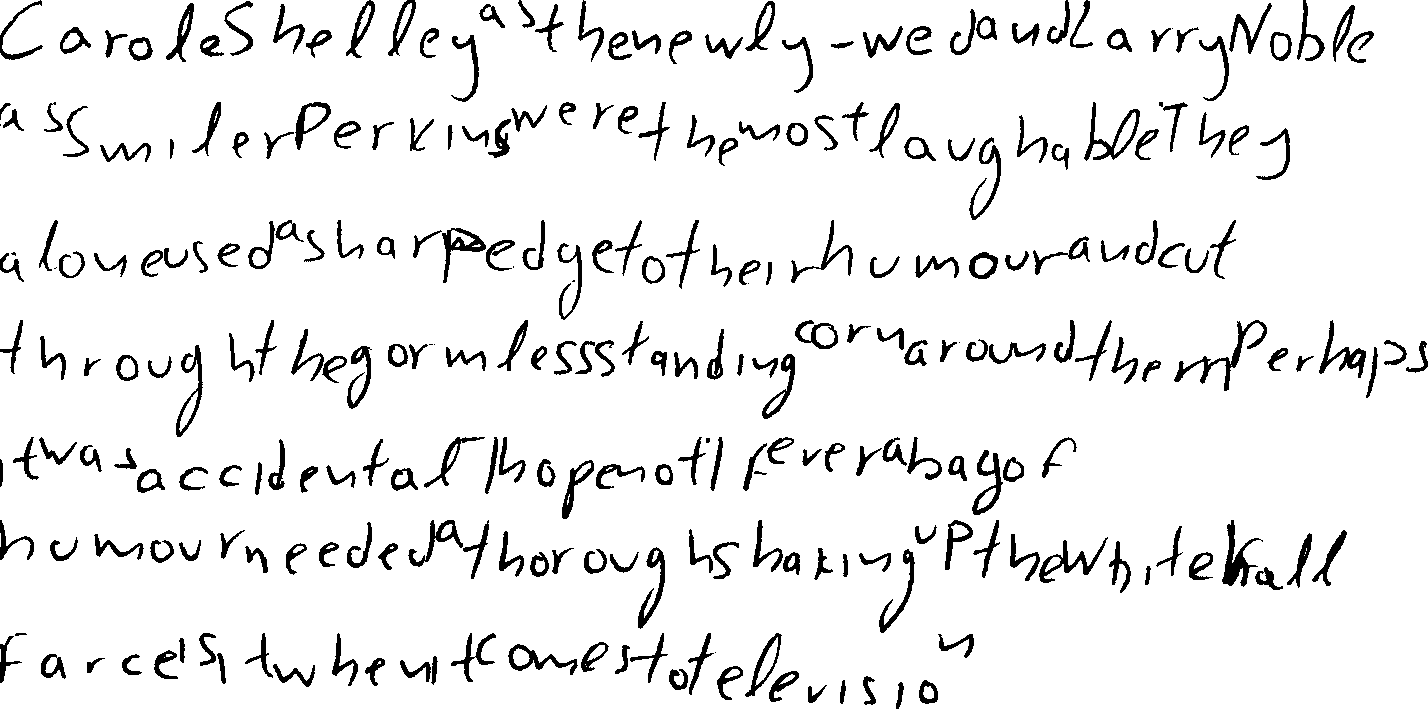 Carole Shelley as the newly-wed and Larry Noble
as Smiler Perkins were the most laughable They
alone used a sharp edge to their humour and cut
through the gormless standing corn around them Perhaps
it was accidental I hope not If ever a bag of
humour needed a thorough shaking up the Whitehall
farce is it when it comes to television